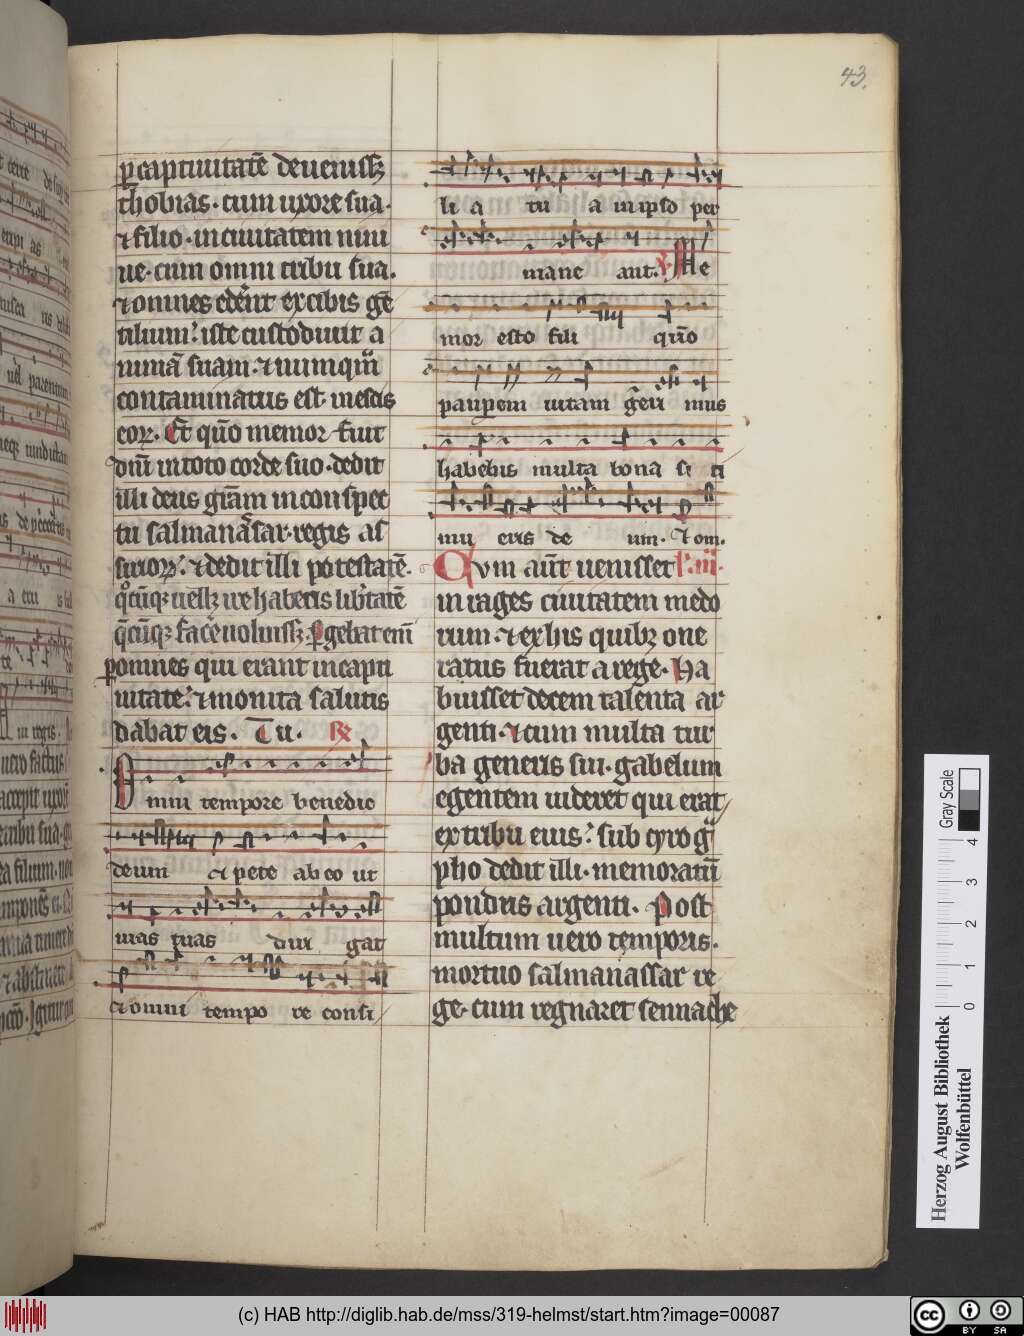 43.
ꝑ captiuitatē deuenissꝫ
thobias· cum uxore sua·
⁊ filio· in ciuitatem nini
ue· cum omni tribu sua.
⁊ omnes edēnt ex cibis gē
tilium: iste custodiuit a
nimā suam· ⁊ numqͣm
contaminatus est in escis
eoꝝ. Et qm̄o memor fuit
dn̄i in toto corde suo· dedit
illi deus grām in conspec
tu salmanāsar· regis as
sirioꝝ: ⁊ dedit illi potestatē·
qͦcūqꝫ uellꝫ ire habens lib̄tatē
q̄cūqꝫ facē uoluissꝫ. ꝑgebat em̄
ꝑ omnes qui erant in capti
uitate: ⁊ monita salutis
dabat eis. Tu. ℞
Omni tempore benedic
deum ⁊ pete ab eo ut
uias tuas diri gat
⁊ omni tempo re consi
li a tu a in ipso per
mane ant. ℣ Me
mor esto fili qm̄o
pauꝑem uitam gēri mus
habebis multa bona si ti
mu eris de um. ⁊ om.
Cvm aūt uenisset l' iii·
in rages ciuitatem medo
rum· ⁊ ex his quibꝫ one
ratus fuerat a rege· Ha
buisset decem talenta ar
genti· ⁊ cum multa tur
ba generis sui· gabelum
egentem uideret qui erat
ex tribu eius: sub cyrogͣ
pho dedit illi· memoratū
pondus argenti. Post
multum uero temporis·
mortuo salmanassar re
ge· cum regnaret sennache
Gray Scale
0 1 2 3 4
Herzog August Bibliothek
Wolfenbüttel
(c) HAB http://diglib.hab.de/mss/319-helmst/start.htm?image=00087
cc BY SA